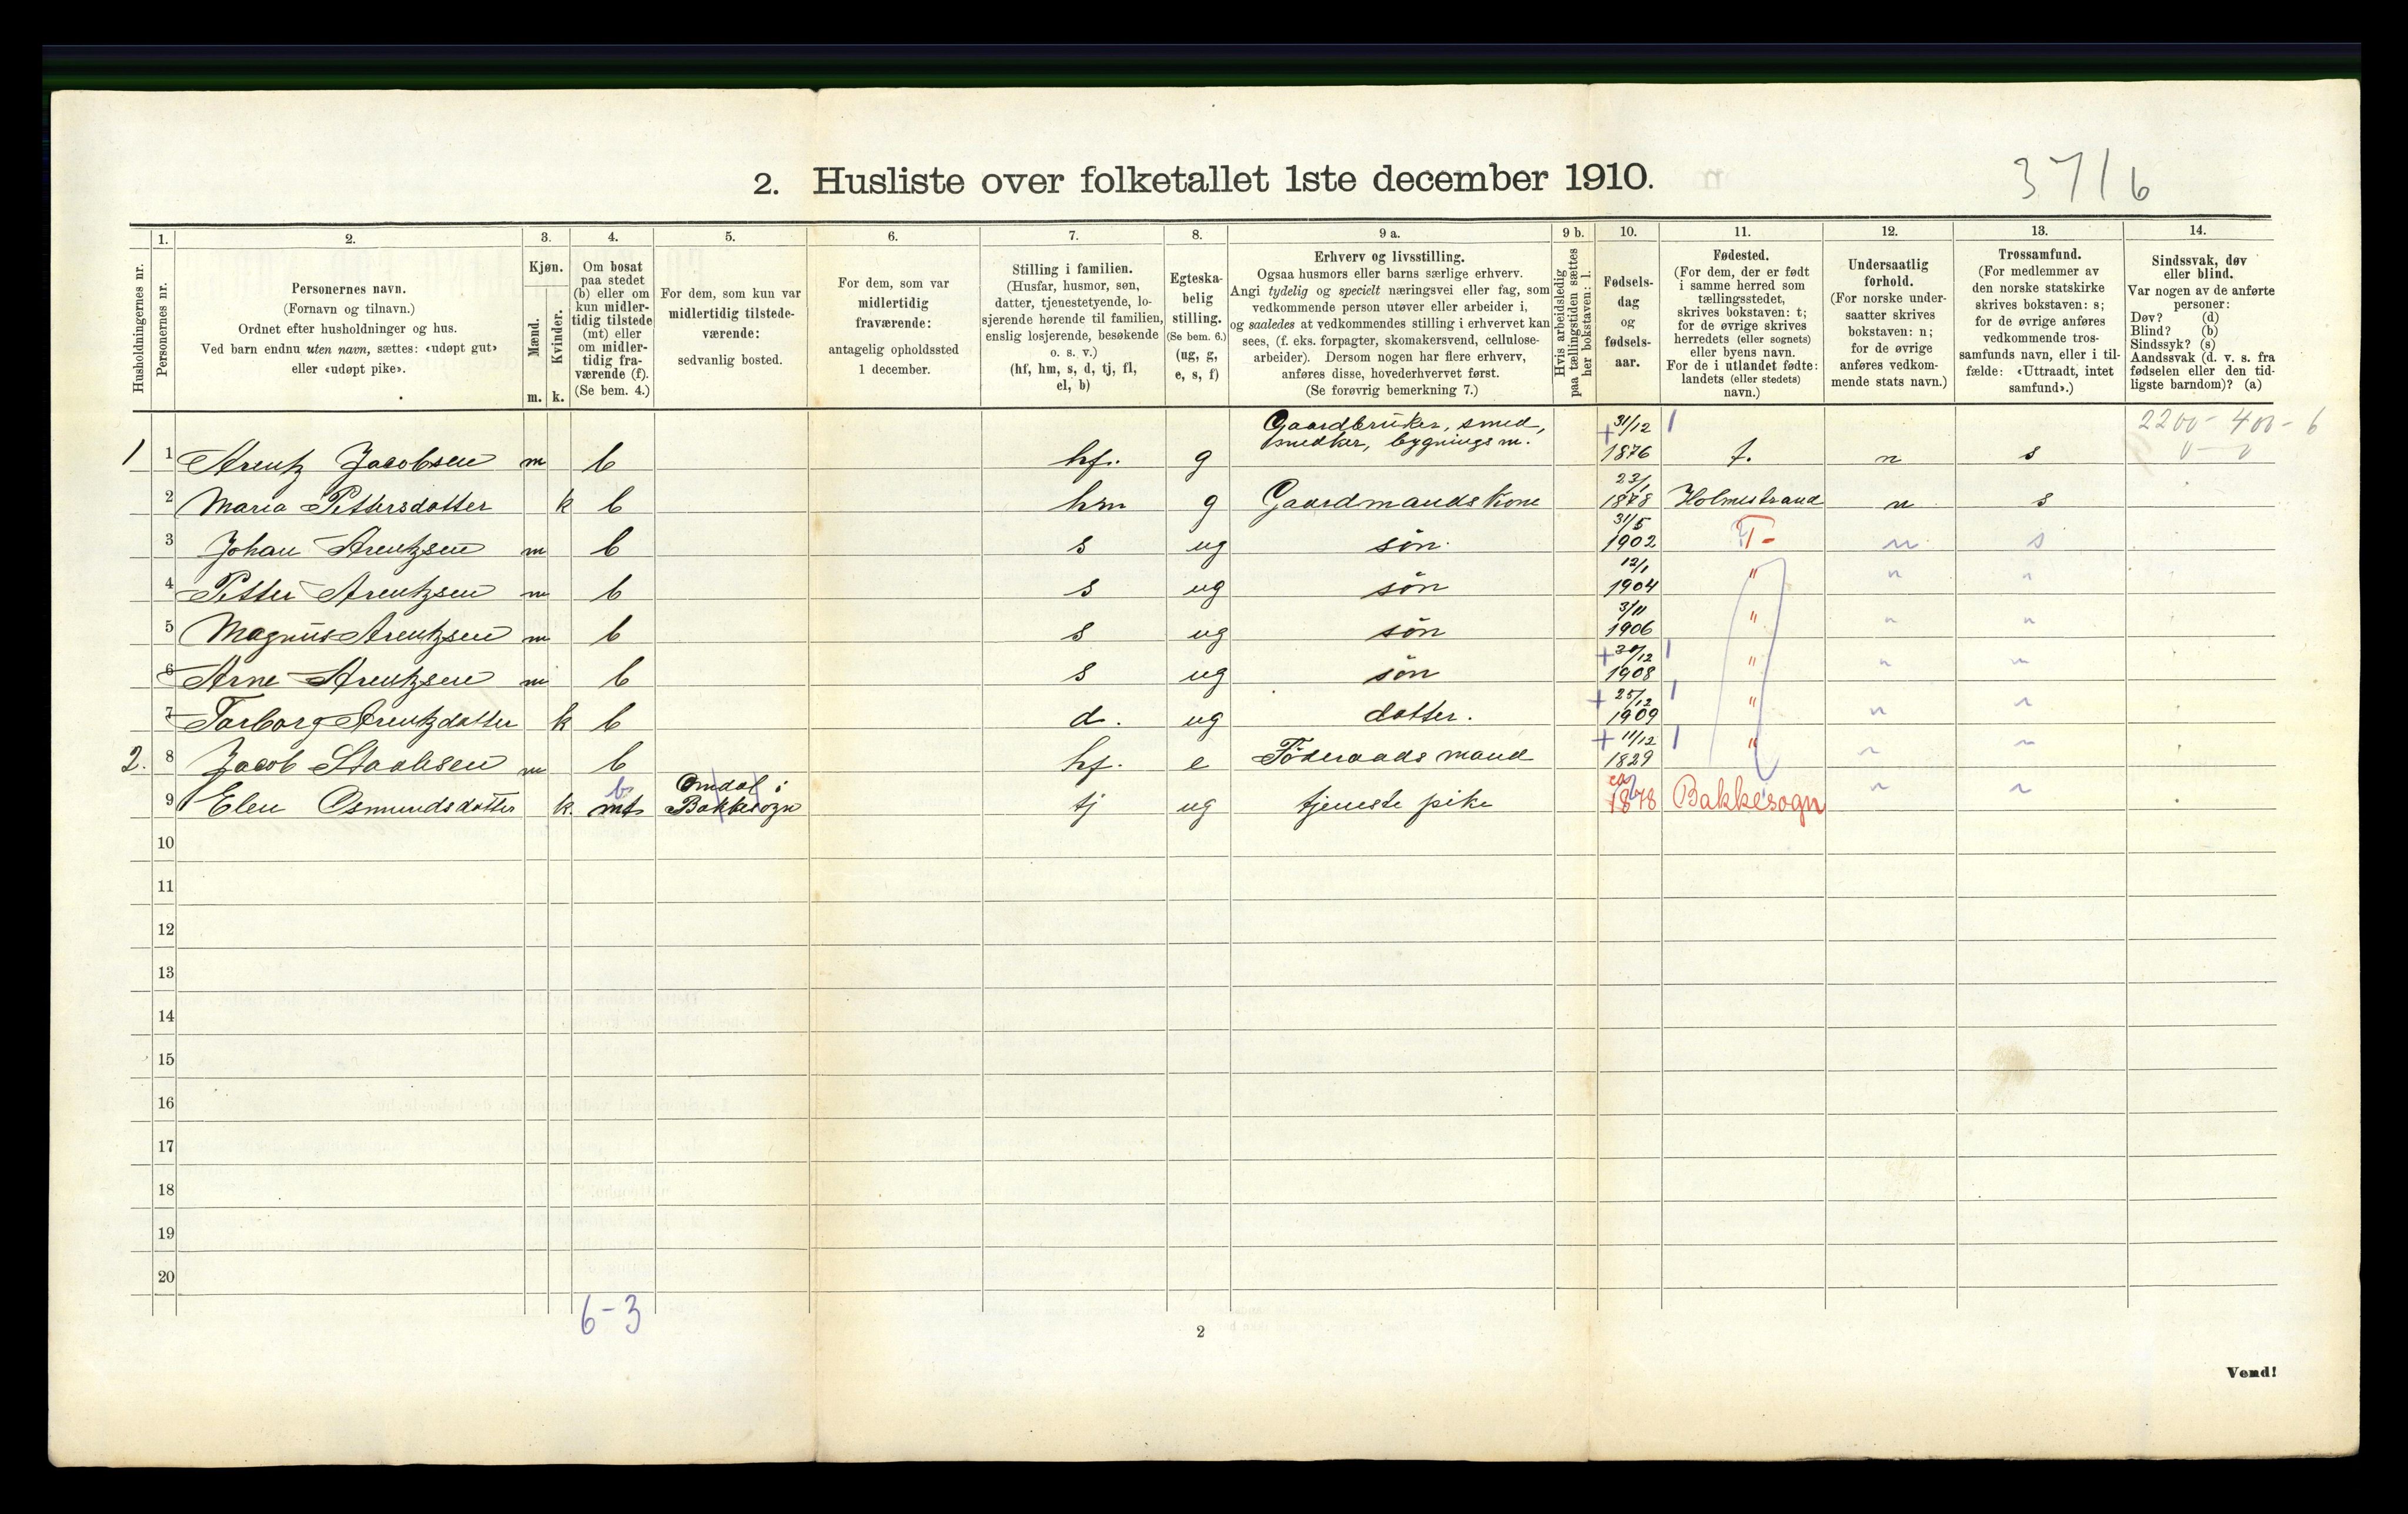 2. Husliste over folketallet 1ste december 1910.
3716
1. 2. 3. 4. 5. 6. 7. 8. 9 a. 9 b. 10. 11. 12. 13. 14.
Husholdningernes nr.
Personernes nr.
Personernes navn.
(Fornavn og tilnavn.)
Ordnet efter husholdninger og hus.
Ved barn endnu uten navn, sættes: «udøpt gut»
eller «udøpt pike».
Kjøn.
Mænd.
Kvinder.
m. k.
Om bosat
paa stedet
(b) eller om
kun midler-
tidig tilstede
(mt) eller
om midler-
tidig fra-
værende (f).
(Se bem. 4.)
For dem, som kun var
midlertidig tilstede-
værende:
sedvanlig bosted.
For dem, som var
midlertidig
fraværende:
antagelig opholdssted
1 december.
Stilling i familien.
(Husfar, husmor, søn,
datter, tjenestetyende, lo-
sjerende hørende til familien,
enslig losjerende, besøkende
o. s. v.)
(hf, hm, s, d, tj, fl,
el, b)
Egteska-
belig
stilling.
(Se bem. 6.)
(ug, g,
e, s, f)
Erhverv og livsstilling.
Ogsaa husmors eller barns særlige erhverv.
Angi tydelig og specielt næringsvei eller fag, som
vedkommende person utøver eller arbeider i,
og saaledes at vedkommendes stilling i erhvervet kan
sees, (f. eks. forpagter, skomakersvend, cellulose-
arbeider). Dersom nogen har flere erhverv,
anføres disse, hovederhvervet først.
(Se forøvrig bemerkning 7.)
Hvis arbeidsledig
paa tællingstiden sættes
her bokstaven: l.
Fødsels-
dag
og
fødsels-
aar.
Fødested.
(For dem, der er født
i samme herred som
tællingsstedet,
skrives bokstaven: t;
for de øvrige skrives
herredets (eller sognets)
eller byens navn.
For de i utlandet fødte:
landets (eller stedets)
navn.)
Undersaatlig
forhold.
(For norske under-
saatter skrives
bokstaven: n;
for de øvrige
anføres vedkom-
mende stats navn.)
Trossamfund.
(For medlemmer av
den norske statskirke
skrives bokstaven: s;
for de øvrige anføres
vedkommende tros-
samfunds navn, eller i til-
fælde: «Uttraadt, intet
samfund».)
Sindssvak, døv
eller blind.
Var nogen av de anførte
personer:
Døv? (d)
Blind? (b)
Sindssyk? (s)
Aandssvak (d. v. s. fra
fødselen eller den tid-
ligste barndom)? (a)
2200 - 400 - 6
Gaardbruker, smed, + 31/12
snedker, bygningsm.
1 1 Arentz Jacobsen m b hf. g 1876 t. n s
23/1
2 Maria Pettersdotter k b hm g Gaardmandskone 1878 Holmestrand n s
31/5
3 Johan Arentzsen m b s ug søn 1902 T- n s
12/1
4 Petter Arentzsen m b s ug søn 1904 " n n
3/11
5 Magnus Arentzsen m b s ug søn 1906 " n n
+ 30/12
6 Arne Arentzsen m b s ug søn 1908 " n n
+ 25/12
7 Torborg Arentzdotter k b d. ug dotter. 1909 " n n
+ 11/12
2. 8 Jacob Staalesen m b hf. e Föderaads mand 1829 " n n
b Omdal i ca
9 Elen Osmundsdotter k. mt Bakkesogn tj ug tjeneste pike 1878 Bakkesogn n n
10
11
12
13
14
15
16
17
18
19
20
6-3
2
Vend!